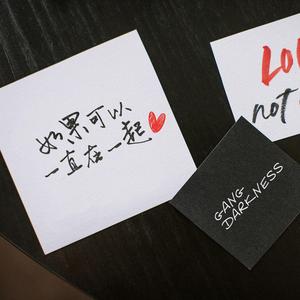 如果可以
一直在一起
not
GANG
DARKNESS